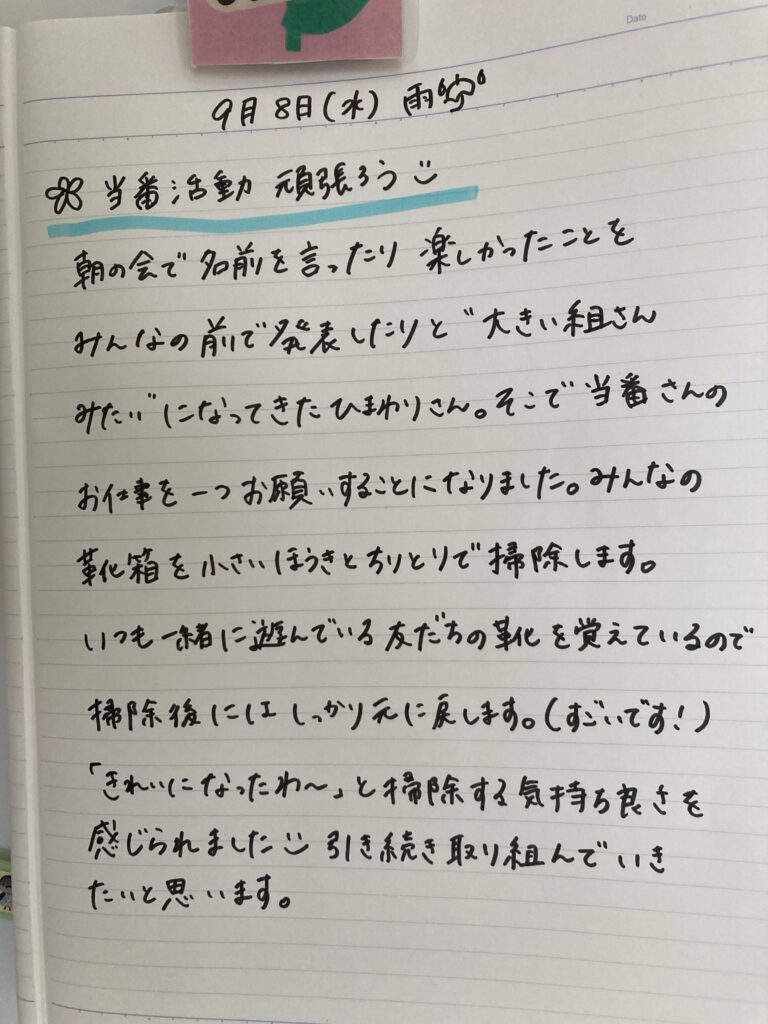 Date
9月8日(水) 雨
当番活動 頑張ろう
朝の会で名前を言ったり 楽しかったことを
みんなの前で発表したりと"大きい組さん
みたい"になってきたひまわりさん。そこで当番さんの
お仕事を一つお願いすることになりました。みんなの
靴箱を小さいほうきとちりとりで掃除します。
いつも一緒に遊んでいる友だちの靴を覚えているので
掃除後にはしっかり元に戻します。(すごいです!)
「きれいになったわ〜」と掃除する気持ち良さを
感じられました 引き続き取り組んでいき
たいと思います。